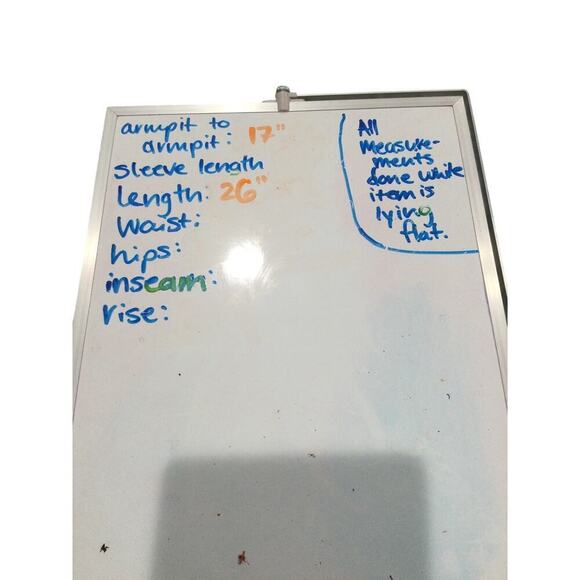 armpit to
armpit: 17"
sleeve length
Length: 26"
Waist:
hips:
inseam:
rise:
All
measure-
ments
done while
item is
lying
flat.